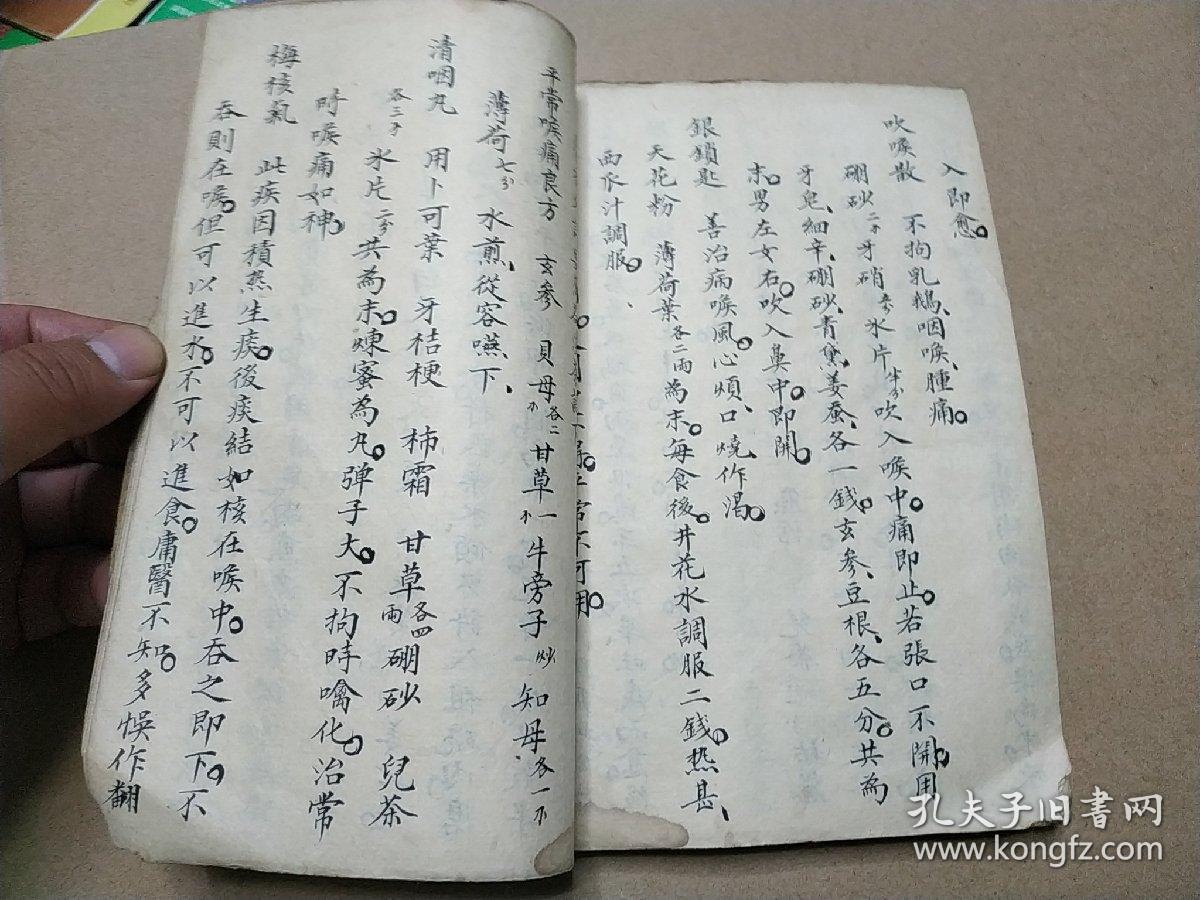 入即愈。
吹喉散 不拘乳鵝、咽喉、腫痛。
硼砂二分牙硝 氷片半分吹入喉中。痛即止。若張口不開。用
牙皂、細辛、硼砂、青黛、姜蚕、各一錢。玄參、豆根、各五分。共為
末。男左女右。吹入鼻中。即開
銀鎖匙 善治病喉風。心煩、口燒、作渴。
天花粉 薄荷葉各二両為末。每食後。井花水調服二錢。热甚、
西瓜汁調服。
可用。
平常喉痛良方 玄參 貝母各二 甘草一 牛旁子炒 知母各一
薄荷七分 水煎、從容嚥下、
清咽丸 用卜可葉 牙桔梗 柿霜 甘草各四両 硼砂 兒茶
各三 氷片二分 共為末。煉蜜為丸。弹子大。不拘時噙化。治常
時喉痛如神。
梅核氣 此疾因積热生痰。後痰結如核在喉中。吞之即下。不
吞則在喉。但可以進水。不可以進食。庸醫不知。多悞作翻
孔夫子旧书网
www.kongfz.com